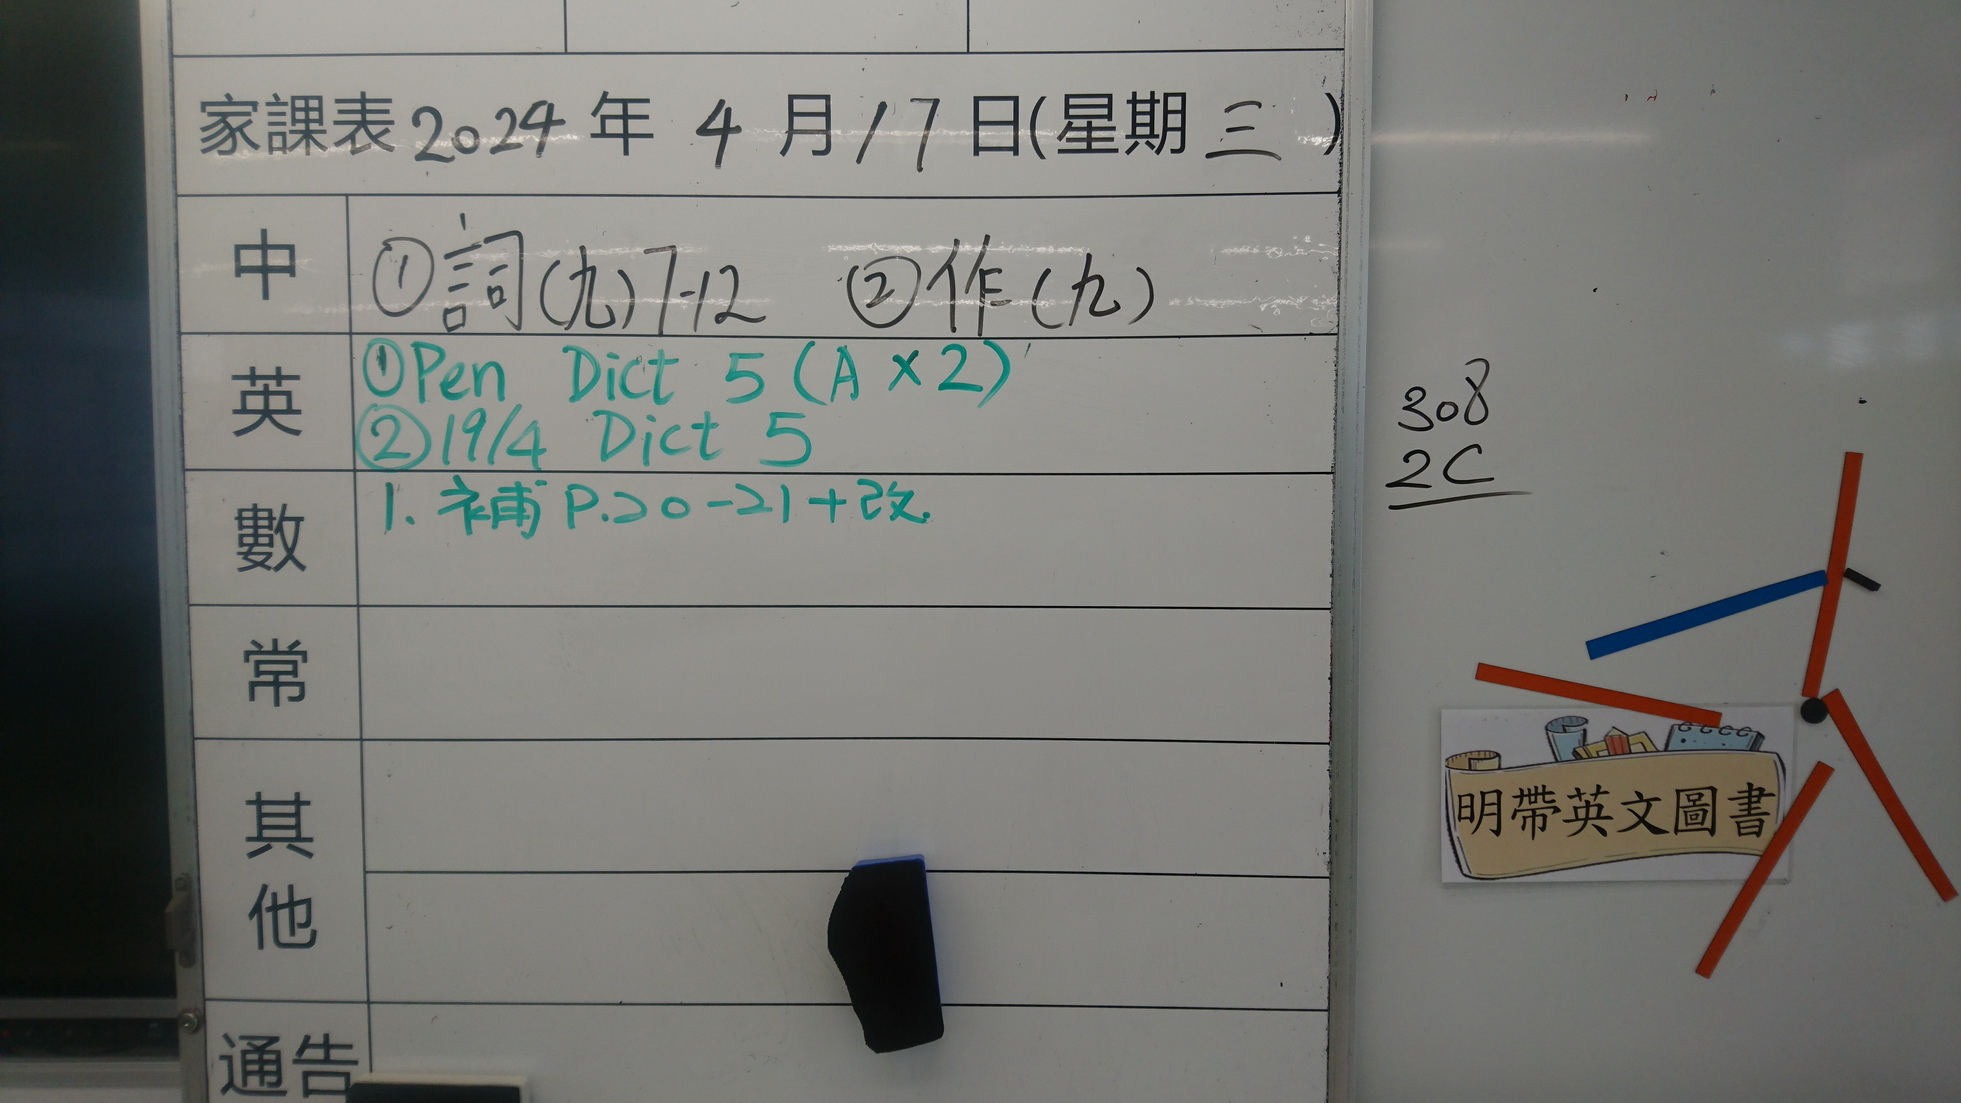 家課表2024年 4 月17日(星期三)
中 ①詞(九)7-12 ②作(九)
英 ①Pen Dict 5 (A×2)
②19/4 Dict 5
數 1. 補 P.20-21+改.
常
其他
通告
308
2C
明帶英文圖書